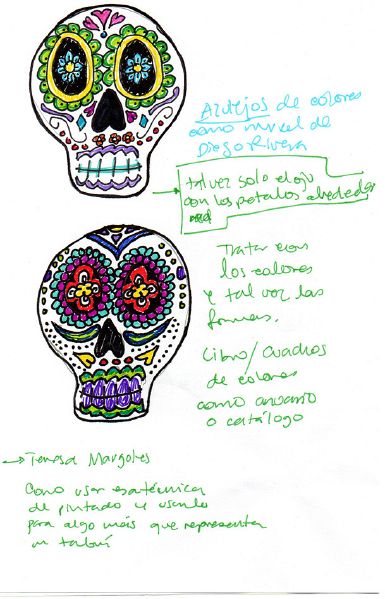 Azulejos de colores
como mural de
Diego Rivera
→ tal vez solo el ojo
con los petalos alrededor
Tratar con
los colores
y tal vez las
formas.
Libro/cuadros
de colores
como
o catálogo
→ Teresa Margoles
Como usar esa técnica
de pintado y usarlo
para algo más que representar
un